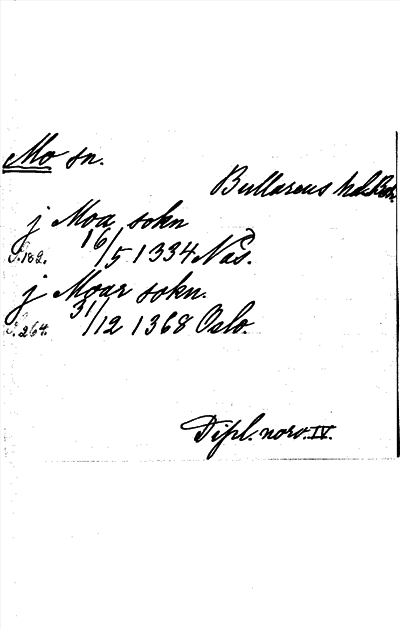 Mo sn.
Bullarens hd. Boh.
j Moa sokn
S.182. 16/5 1334 Nås.
j Moar sokn.
S.264. 31/12 1368 Oslo.
Dipl. norv. IV.